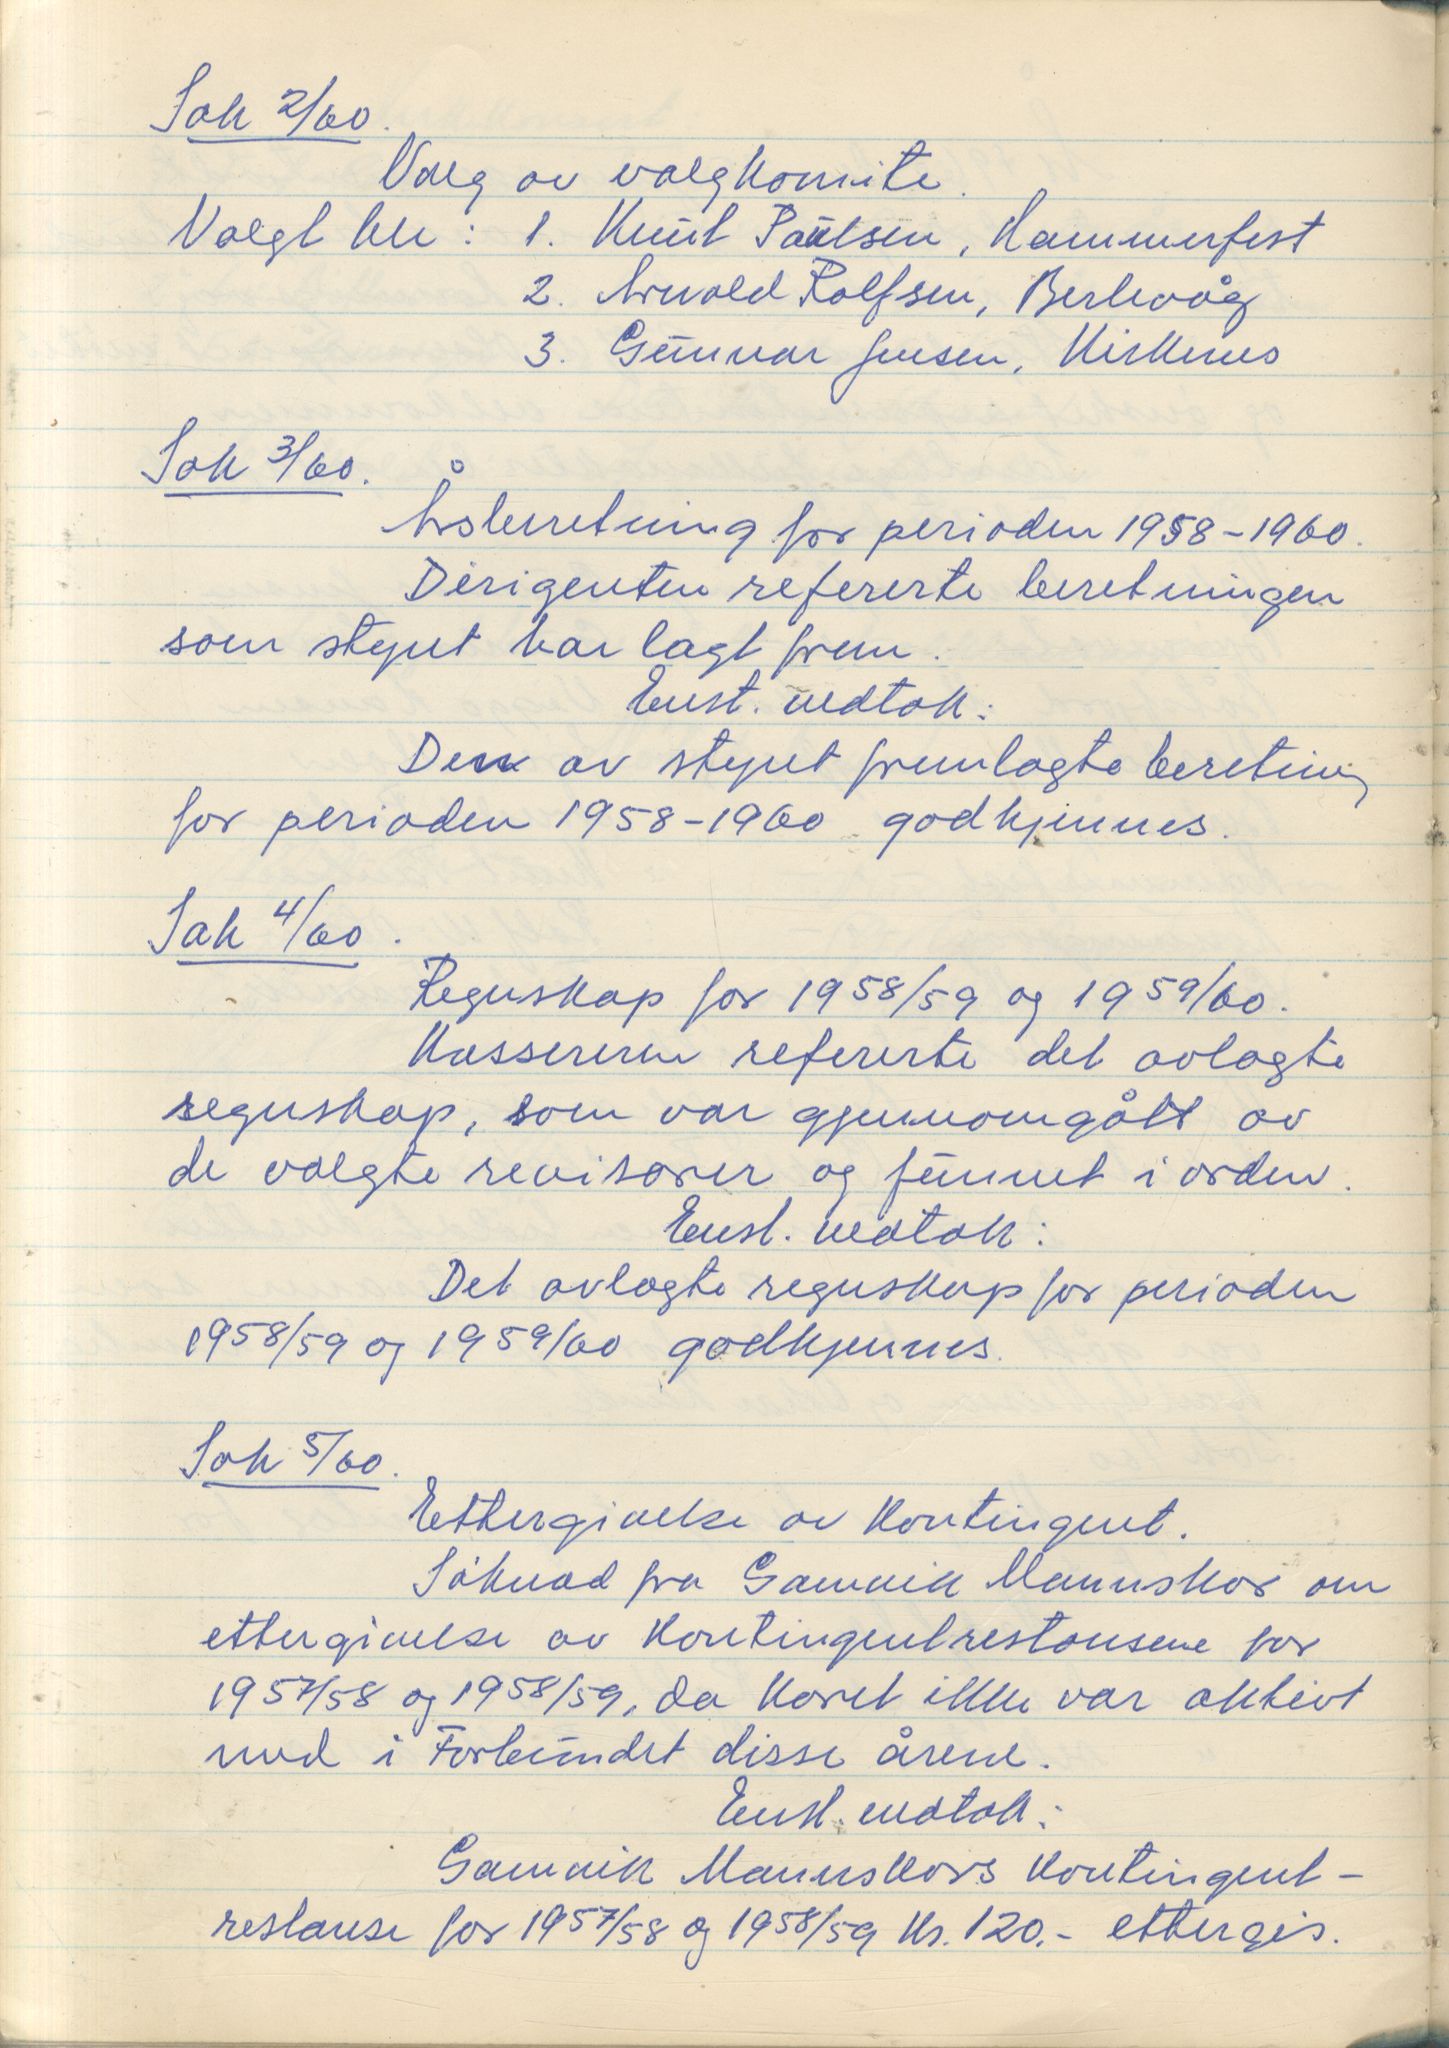 Sak 2/60.
Valg av valgkomite.
Valgt ble: 1. Knut Paulsen, Hammerfest
2. Arvold Rolfsen, Berlevåg
3. Gunnar Jensen, Kirkenes
Sak 3/60.
Årsberetning for perioden 1958-1960.
Dirigenten refererte beretningen
som styret har lagt frem.
Enst. vedtak:
Den av styret fremlagte beretning
for perioden 1958-1960 godkjennes.
Sak 4/60.
Regnskap for 1958/59 og 1959/60.
Kassereren refererte det avlagte
regnskap, som var gjennomgått av
de valgte revisorer og funnet i orden.
Enst. vedtak:
Det avlagte regnskap for perioden
1958/59 og 1959/60 godkjennes.
Sak 5/60.
Ettergivelse av kontingent.
Søknad fra Gamvik Mannskor om
ettergivelse av kontingentrestansene for
1957/58 og 1958/59, da koret ikke var aktivt
med i Forbundet disse årene.
Enst. vedtak:
Gamvik Mannskors kontingent-
restanse for 1957/58 og 1958/59 kr. 120.- ettergis.